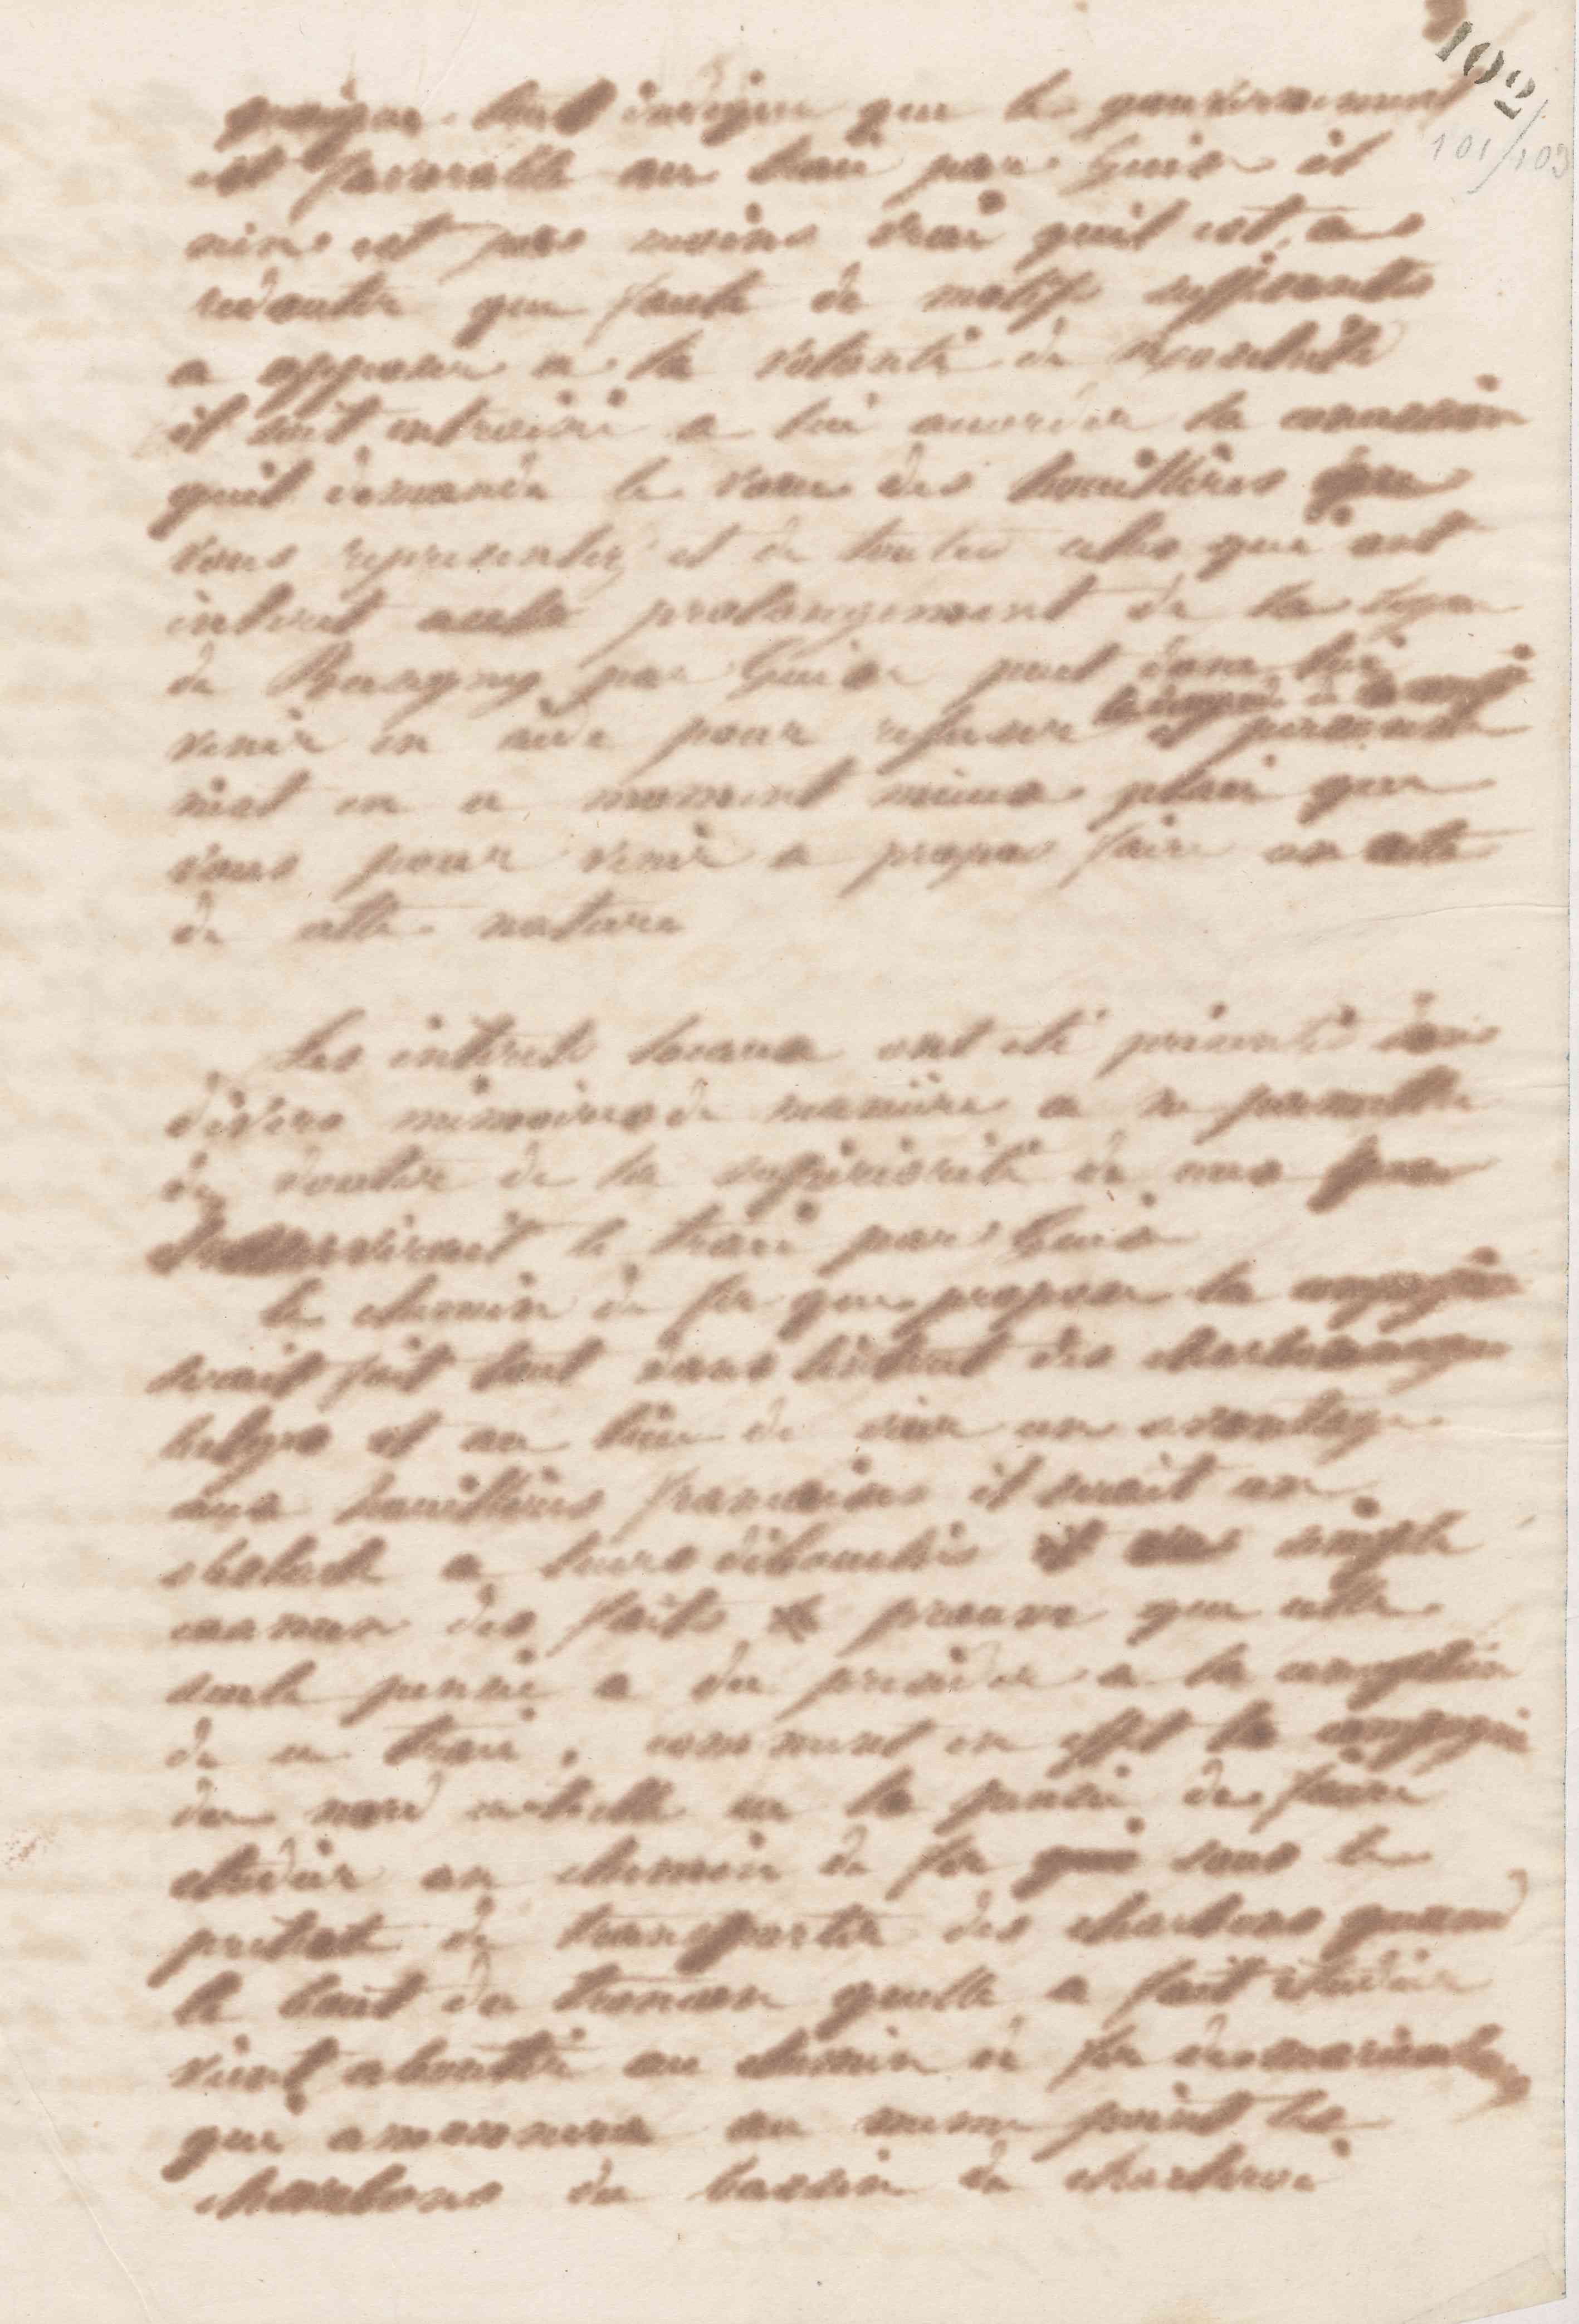 102
101/103
quoique tout indique que le gouvernement
est favorable au tracé par Guise il
nen est pas moins vrai quil est a
redouter que faute de motifs suffisants
a opposer a la volonté de
il soit entrainé a lui accorder la concession
quil demande le vœu des houillères que
vous representez et de toutes celles qui ont
interet au prolongement de la ligne
de Busigny par Guise peut donc lui
venir en aide pour refuser et personne
nest en ce moment mieux placé que
vous pour venir a propos faire un acte
de cette nature
Les interets locaux ont été présentés dans
divers mémoires de manière a ne permettre
de douter de la superiorité de ceux que
desservirait le tracé par Guise
le chemin de fer que propose la compagnie
serait fait tout dans linteret des charbonnages
belges et au lieu detre un avantage
aux houillères francaises il serait un
obstacle a leurs débouchés et un simple
examen des faits prouve que cette
seule pensée a du présider a la conception
de ce tracé, comment en effet la compagnie
du nord a telle eu la pensée de faire
etudier un chemin de fer sous le
pretexte de transporter des charbons quand
le bout du troncon quelle a fait etudier
vient aboutir au chemin de fer des
qui amenera au meme point les
charbons du bassin de charleroi